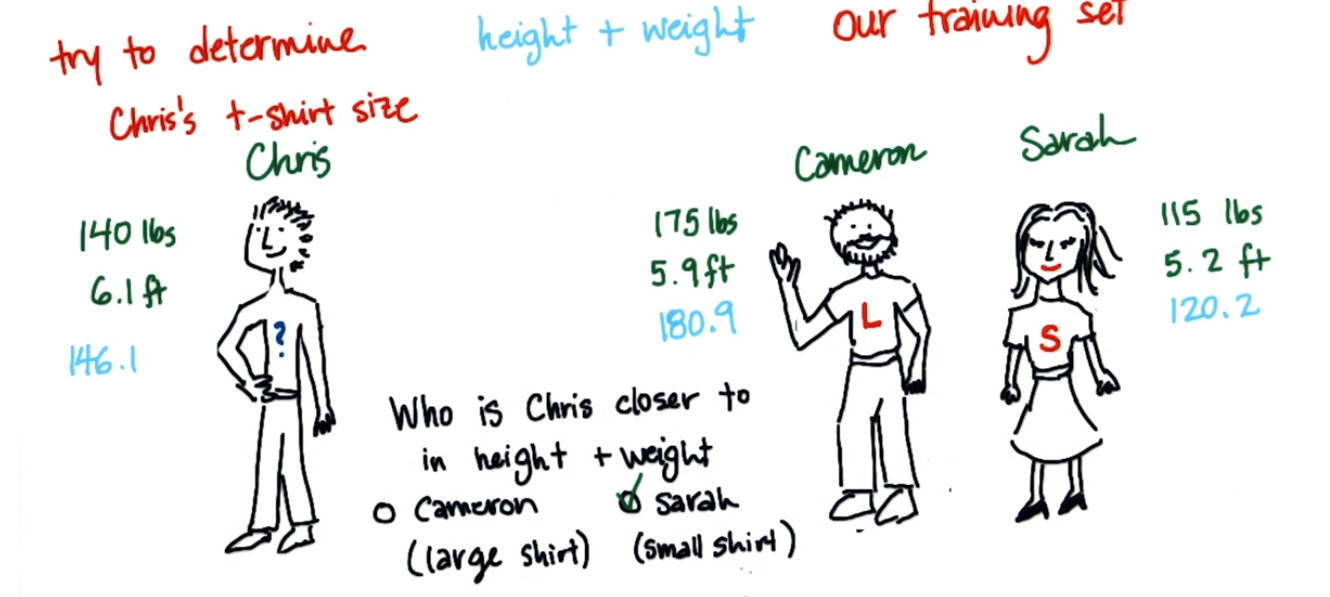 try to determine
Chris's t-shirt size
height + weight
our training set
Chris
140 lbs
6.1 ft
146.1
?
Cameron
175 lbs
5.9 ft
180.9
L
Sarah
115 lbs
5.2 ft
120.2
S
Who is Chris closer to
in height + weight
Cameron
(large shirt)
Sarah
(small shirt)